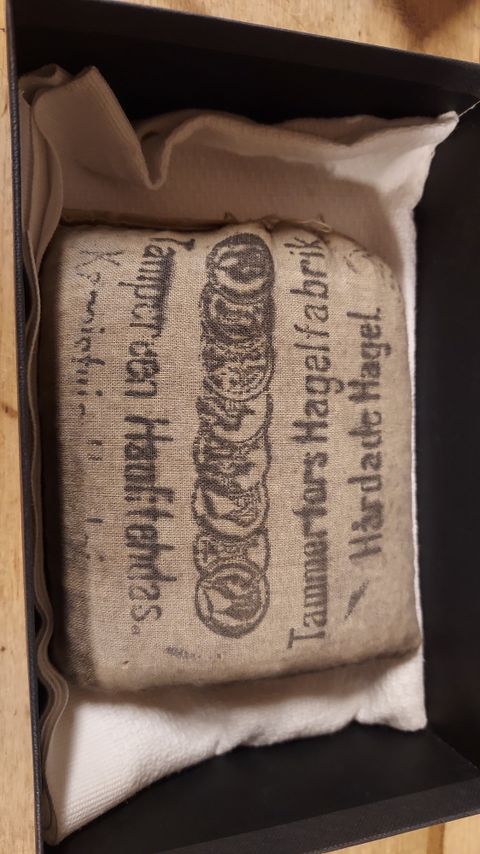 Tammerfors Hagelfabrik
Hårdade Hagel.
Tampereen Haulitehdas.